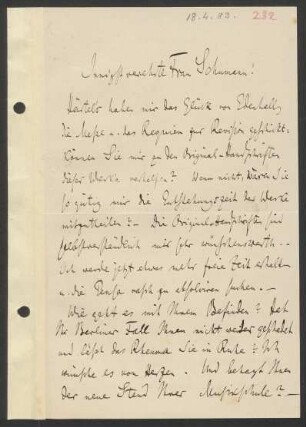 18.4.83. 232
Innigst verehrte Frau Schumann!
Härtels haben mir das Glück von Edenhall,
die Messe u. das Requiem zur Revision geschickt.
Können Sie mir zu den Original-Handschriften
dieser Werke verhelfen? Wenn nicht, wären Sie
so gütig mir die Entstehungszeit der Werke
mitzutheilen? – Die Original-Handschriften sind
selbstverständlich mir sehr wünschenswerth. –
Ich werde jetzt etwas mehr freie Zeit erhalten
u. die Pensa rasch zu absolviren suchen. –
Wie geht es mit Ihrem Befinden? Hat
der Berliner Fall Ihnen nicht weiter geschadet
und läßt das Rheuma Sie in Ruhe? Ich
wünsche es von Herzen. Und behagt Ihnen
der neue Stand Ihrer Musikschule? –